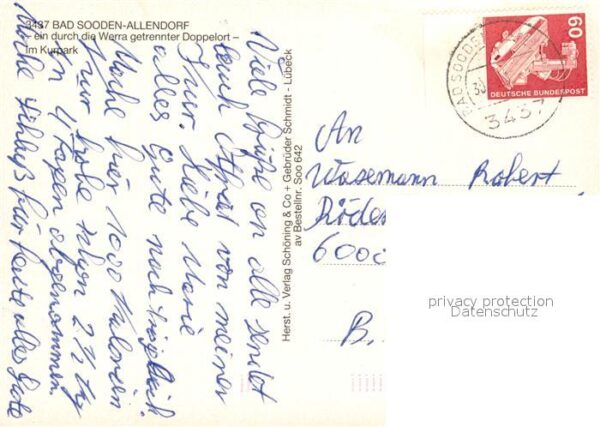 3437 BAD SOODEN-ALLENDORF
– ein durch die Werra getrennter Doppelort –
im Kurpark
Viele Grüße an alle sendet
Euch Otfrat von meiner
Kur. Liebe Marie
alles Gute nachträglich
Mache hier 1000 Kalorien
Kur habe schon 2 ½ kg
in 4 Tagen abgenommen.
Mache Schluß für heute alles Gute
Herst. u. Verlag Schöning & Co + Gebrüder Schmidt - Lübeck
av Bestellnr. Soo 642
BAD SOODEN
30
3437
60
DEUTSCHE BUNDESPOST
An
Wasemann Robert
Röde
600
B.
privacy protection
Datenschutz